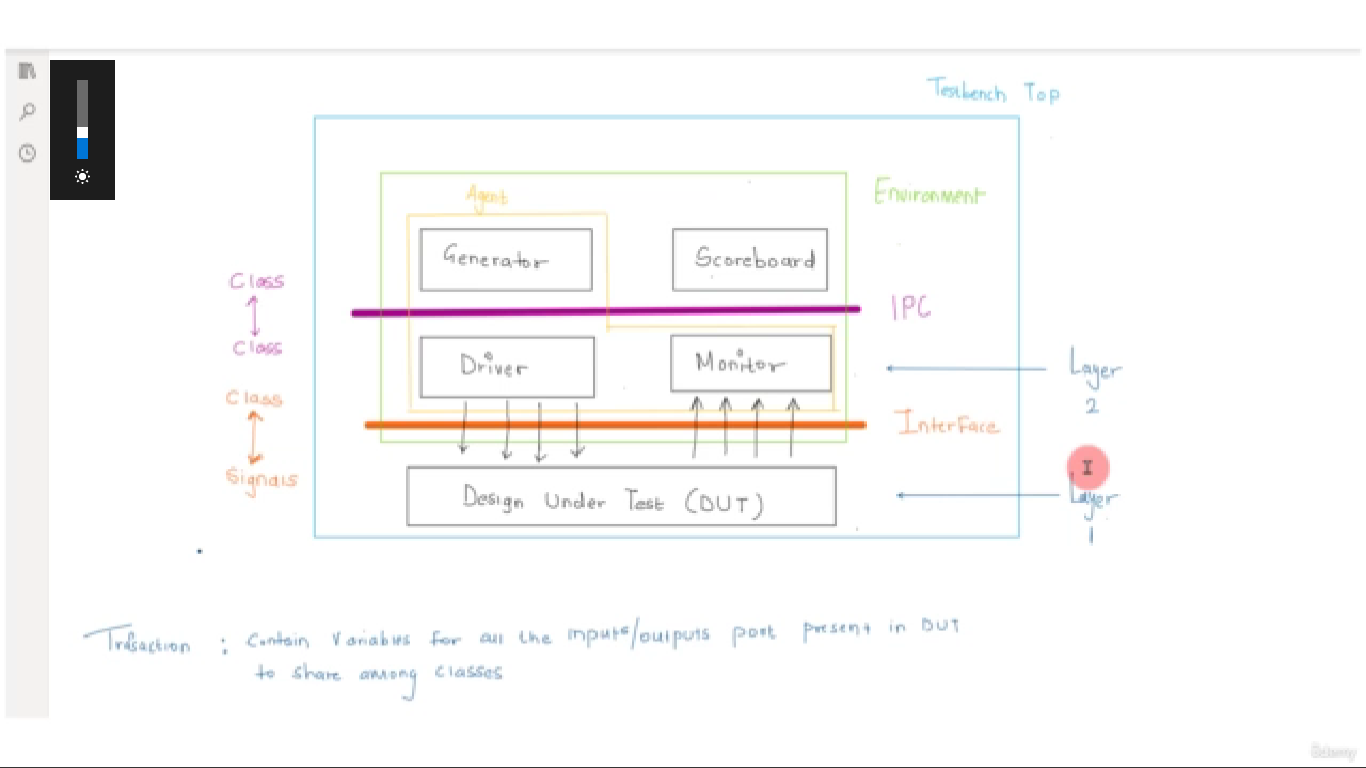 Testbench Top
Agent
Environment
Generator
Scoreboard
Class
IPC
Class
Driver
Monitor
Layer
2
Class
Interface
Signals
Design Under Test (DUT)
Layer
1
Trasaction : Contain Variables for all the inputs/outputs port present in DUT
to share among classes
ûdemy